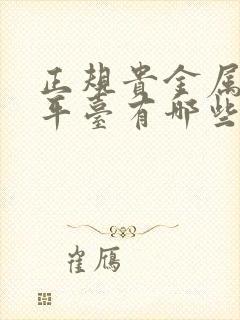 正规贵金属
平台有哪些
崔雁